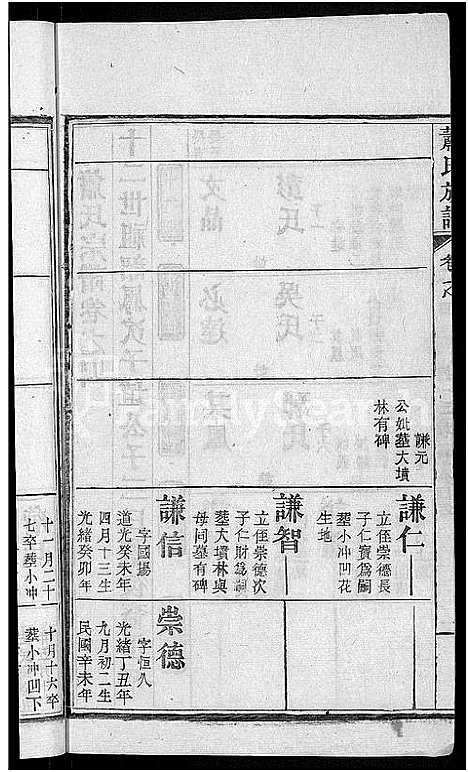 蕭氏族譜
謙元
公妣墓大墳
林有碑
謙仁
立侄崇德長
子仁寶爲嗣
塟小冲凹花
生地
謙智
立侄崇德次
子仁財爲嗣
塟大墳林與
母同墓有碑
謙信
字國揚
道光癸未年
四月十三生
光緒癸卯年
崇德
字恒久
光緒丁丑年
九月初二生
民國辛未年
十一月二十
七卒塟小冲
十月十六卒
塟小冲凹下